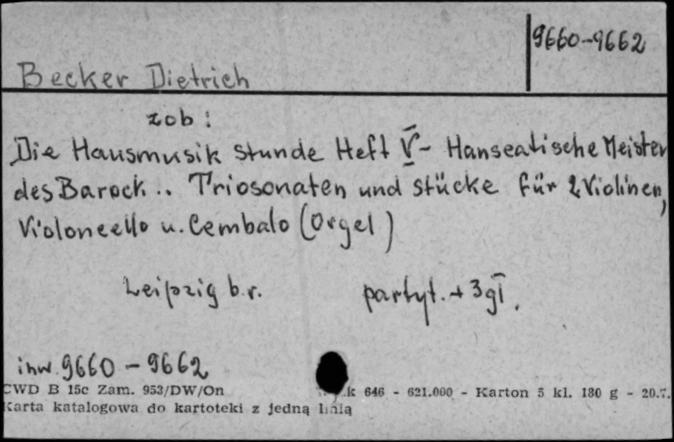 9660-9662
Becker Dietrich
zob:
Die Hausmusik stunde Heft V - Hanseatische Meister
des Barock.. Triosonaten und stücke für 2 Violinen,
Violoncello u. Cembalo (Orgel)
Leipzig b.r. partyt. + 3 gł.
inw. 9660 - 9662
CWD B 15c Zam. 953/DW/On k 646 - 621.000 - Karton 5 kl. 180 g - 20.7.
Karta katalogowa do kartoteki z jedną linią